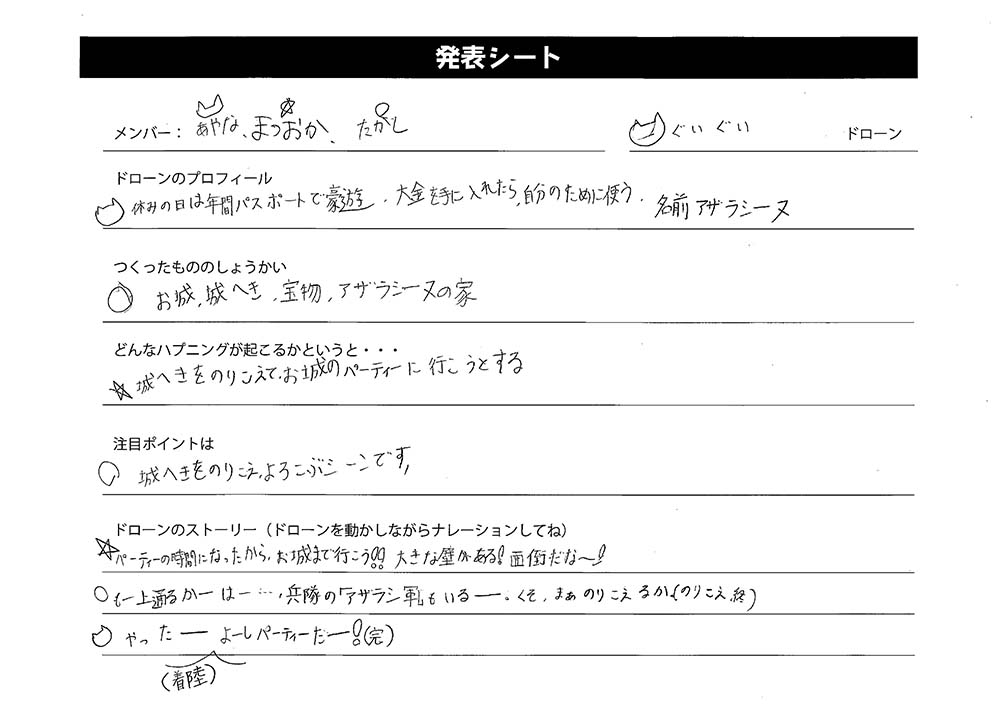 発表シート
メンバー： あやな、まつおか、たかし ぐいぐい ドローン
ドローンのプロフィール
休みの日は年間パスポートで豪遊。大金を手に入れたら、自分のために使う。名前アザラシーヌ
つくったもののしょうかい
お城、城へき、宝物、アザラシーヌの家
どんなハプニングが起こるかというと・・・
城へきをのりこえて、お城のパーティーに行こうとする
注目ポイントは
城へきをのりこえ、よろこぶシーンです。
ドローンのストーリー（ドローンを動かしながらナレーションしてね）
パーティーの時間になったから、お城まで行こう!! 大きな壁がある! 面倒だな〜!
も一上通るかーはー…、兵隊の「アザラシ軍」もいるー。くそ、まぁのりこえるか、(のりこえ、終)
やったー よーしパーティーだー!(完)
(着陸)